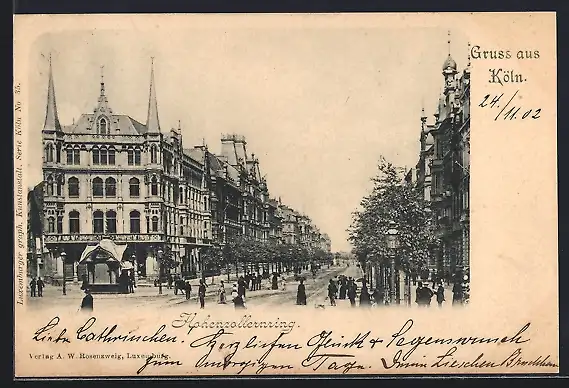 Gruss aus
Köln.
24./11.02
Luxemburger graph. Kunstanstalt. Serie Köln No 35.
Hohenzollernring.
Liebe Cathrinchen. Herzlichen Glück & Segenswunsch
Verlag A. W. Rosenzweig, Luxemburg.
zum Tage.